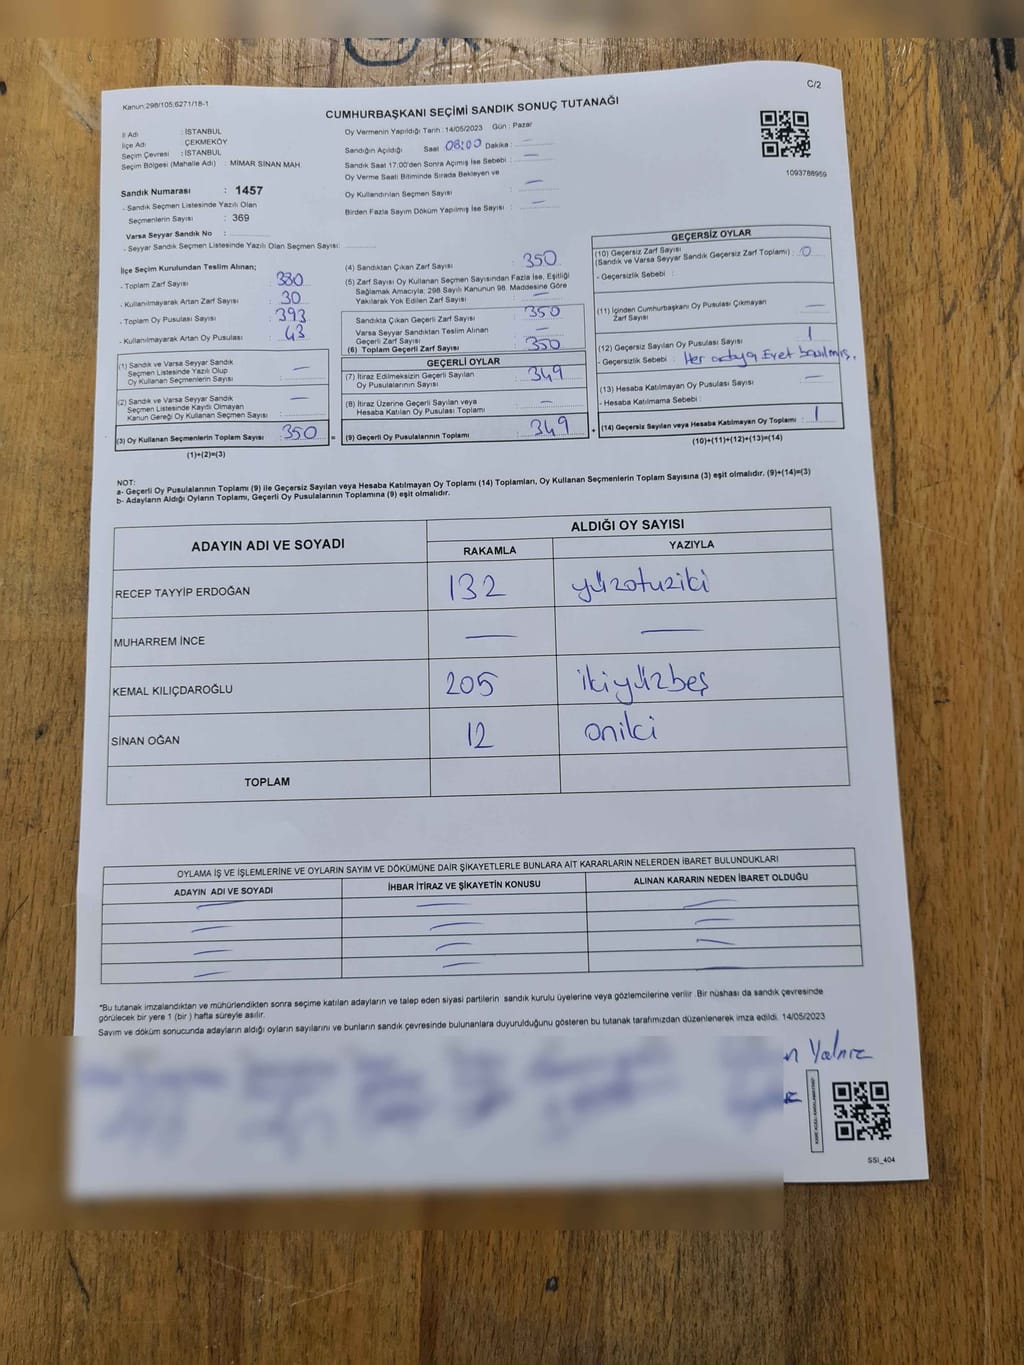 C/2
Kanun:298/105;6271/18-1
CUMHURBAŞKANI SEÇİMİ SANDIK SONUÇ TUTANAĞI
İl Adı : İSTANBUL
İlçe Adı : ÇEKMEKÖY
Seçim Çevresi : İSTANBUL
Seçim Bölgesi (Mahalle Adı) : MİMAR SİNAN MAH.
Sandık Numarası : 1457
- Sandık Seçmen Listesinde Yazılı Olan
Seçmenlerin Sayısı : 369
Varsa Seyyar Sandık No :
- Seyyar Sandık Seçmen Listesinde Yazılı Olan Seçmen Sayısı:
Oy Vermenin Yapıldığı Tarih : 14/05/2023 Gün : Pazar
Sandığın Açıldığı Saat 08:00 Dakika : —
Sandık Saat 17:00'den Sonra Açılmış İse Sebebi : —
Oy Verme Saati Bitiminde Sırada Bekleyen ve
Oy Kullandırılan Seçmen Sayısı : —
Birden Fazla Sayım Döküm Yapılmış İse Sayısı : —
1093788959
İlçe Seçim Kurulundan Teslim Alınan;
- Toplam Zarf Sayısı : 380
- Kullanılmayarak Artan Zarf Sayısı : 30
- Toplam Oy Pusulası Sayısı : 393
- Kullanılmayarak Artan Oy Pusulası : 43
(1) Sandık ve Varsa Seyyar Sandık
Seçmen Listesinde Yazılı Olup
Oy Kullanan Seçmenlerin Sayısı : —
(2) Sandık ve Varsa Seyyar Sandık
Seçmen Listesinde Kaydı Olmayan
Kanun Gereği Oy Kullanan Seçmen Sayısı : —
(3) Oy Kullanan Seçmenlerin Toplam Sayısı : 350 =
(1)+(2)=(3)
(4) Sandıktan Çıkan Zarf Sayısı : 350
(5) Zarf Sayısı Oy Kullanan Seçmen Sayısından Fazla İse, Eşitliği
Sağlamak Amacıyla; 298 Sayılı Kanunun 98. Maddesine Göre
Yakılarak Yok Edilen Zarf Sayısı : —
Sandıkta Çıkan Geçerli Zarf Sayısı : 350
Varsa Seyyar Sandıktan Teslim Alınan
Geçerli Zarf Sayısı : —
(6) Toplam Geçerli Zarf Sayısı : 350
GEÇERLİ OYLAR
(7) İtiraz Edilmeksizin Geçerli Sayılan
Oy Pusulalarının Sayısı : 349
(8) İtiraz Üzerine Geçerli Sayılan veya
Hesaba Katılan Oy Pusulası Toplamı : —
(9) Geçerli Oy Pusulalarının Toplamı : 349 +
GEÇERSİZ OYLAR
(10) Geçersiz Zarf Sayısı
(Sandık ve Varsa Seyyar Sandık Geçersiz Zarf Toplamı) : 0
- Geçersizlik Sebebi :
(11) İçinden Cumhurbaşkanı Oy Pusulası Çıkmayan
Zarf Sayısı : —
(12) Geçersiz Sayılan Oy Pusulası Sayısı : 1
- Geçersizlik Sebebi : Her adaya Evet basılmış.
(13) Hesaba Katılmayan Oy Pusulası Sayısı : —
- Hesaba Katılmama Sebebi :
(14) Geçersiz Sayılan veya Hesaba Katılmayan Oy Toplamı : 1
(10)+(11)+(12)+(13)=(14)
NOT:
a- Geçerli Oy Pusulalarının Toplamı (9) ile Geçersiz Sayılan veya Hesaba Katılmayan Oy Toplamı (14) Toplamları, Oy Kullanan Seçmenlerin Toplam Sayısına (3) eşit olmalıdır. (9)+(14)=(3)
b- Adayların Aldığı Oyların Toplamı, Geçerli Oy Pusulalarının Toplamına (9) eşit olmalıdır.
ADAYIN ADI VE SOYADI ALDIĞI OY SAYISI
RAKAMLA YAZIYLA
RECEP TAYYİP ERDOĞAN 132 yüzotuziki
MUHARREM İNCE — —
KEMAL KILIÇDAROĞLU 205 ikiyüzbeş
SİNAN OĞAN 12 oniki
TOPLAM
OYLAMA İŞ VE İŞLEMLERİNE VE OYLARIN SAYIM VE DÖKÜMÜNE DAİR ŞİKAYETLERLE BUNLARA AİT KARARLARIN NELERDEN İBARET BULUNDUKLARI
ADAYIN ADI VE SOYADI İHBAR İTİRAZ VE ŞİKAYETİN KONUSU ALINAN KARARIN NEDEN İBARET OLDUĞU
— — —
— — —
— — —
— — —
*Bu tutanak imzalandıktan ve mühürlendikten sonra seçime katılan adayların ve talep eden siyasi partilerin sandık kurulu üyelerine veya gözlemcilerine verilir. Bir nüshası da sandık çevresinde
görülecek bir yere 1 (bir) hafta süreyle asılır.
Sayım ve döküm sonucunda adayların aldığı oyların sayılarını ve bunların sandık çevresinde bulunanlara duyurulduğunu gösteren bu tutanak tarafımızdan düzenlenerek imza edildi. 14/05/2023
SSİ_404